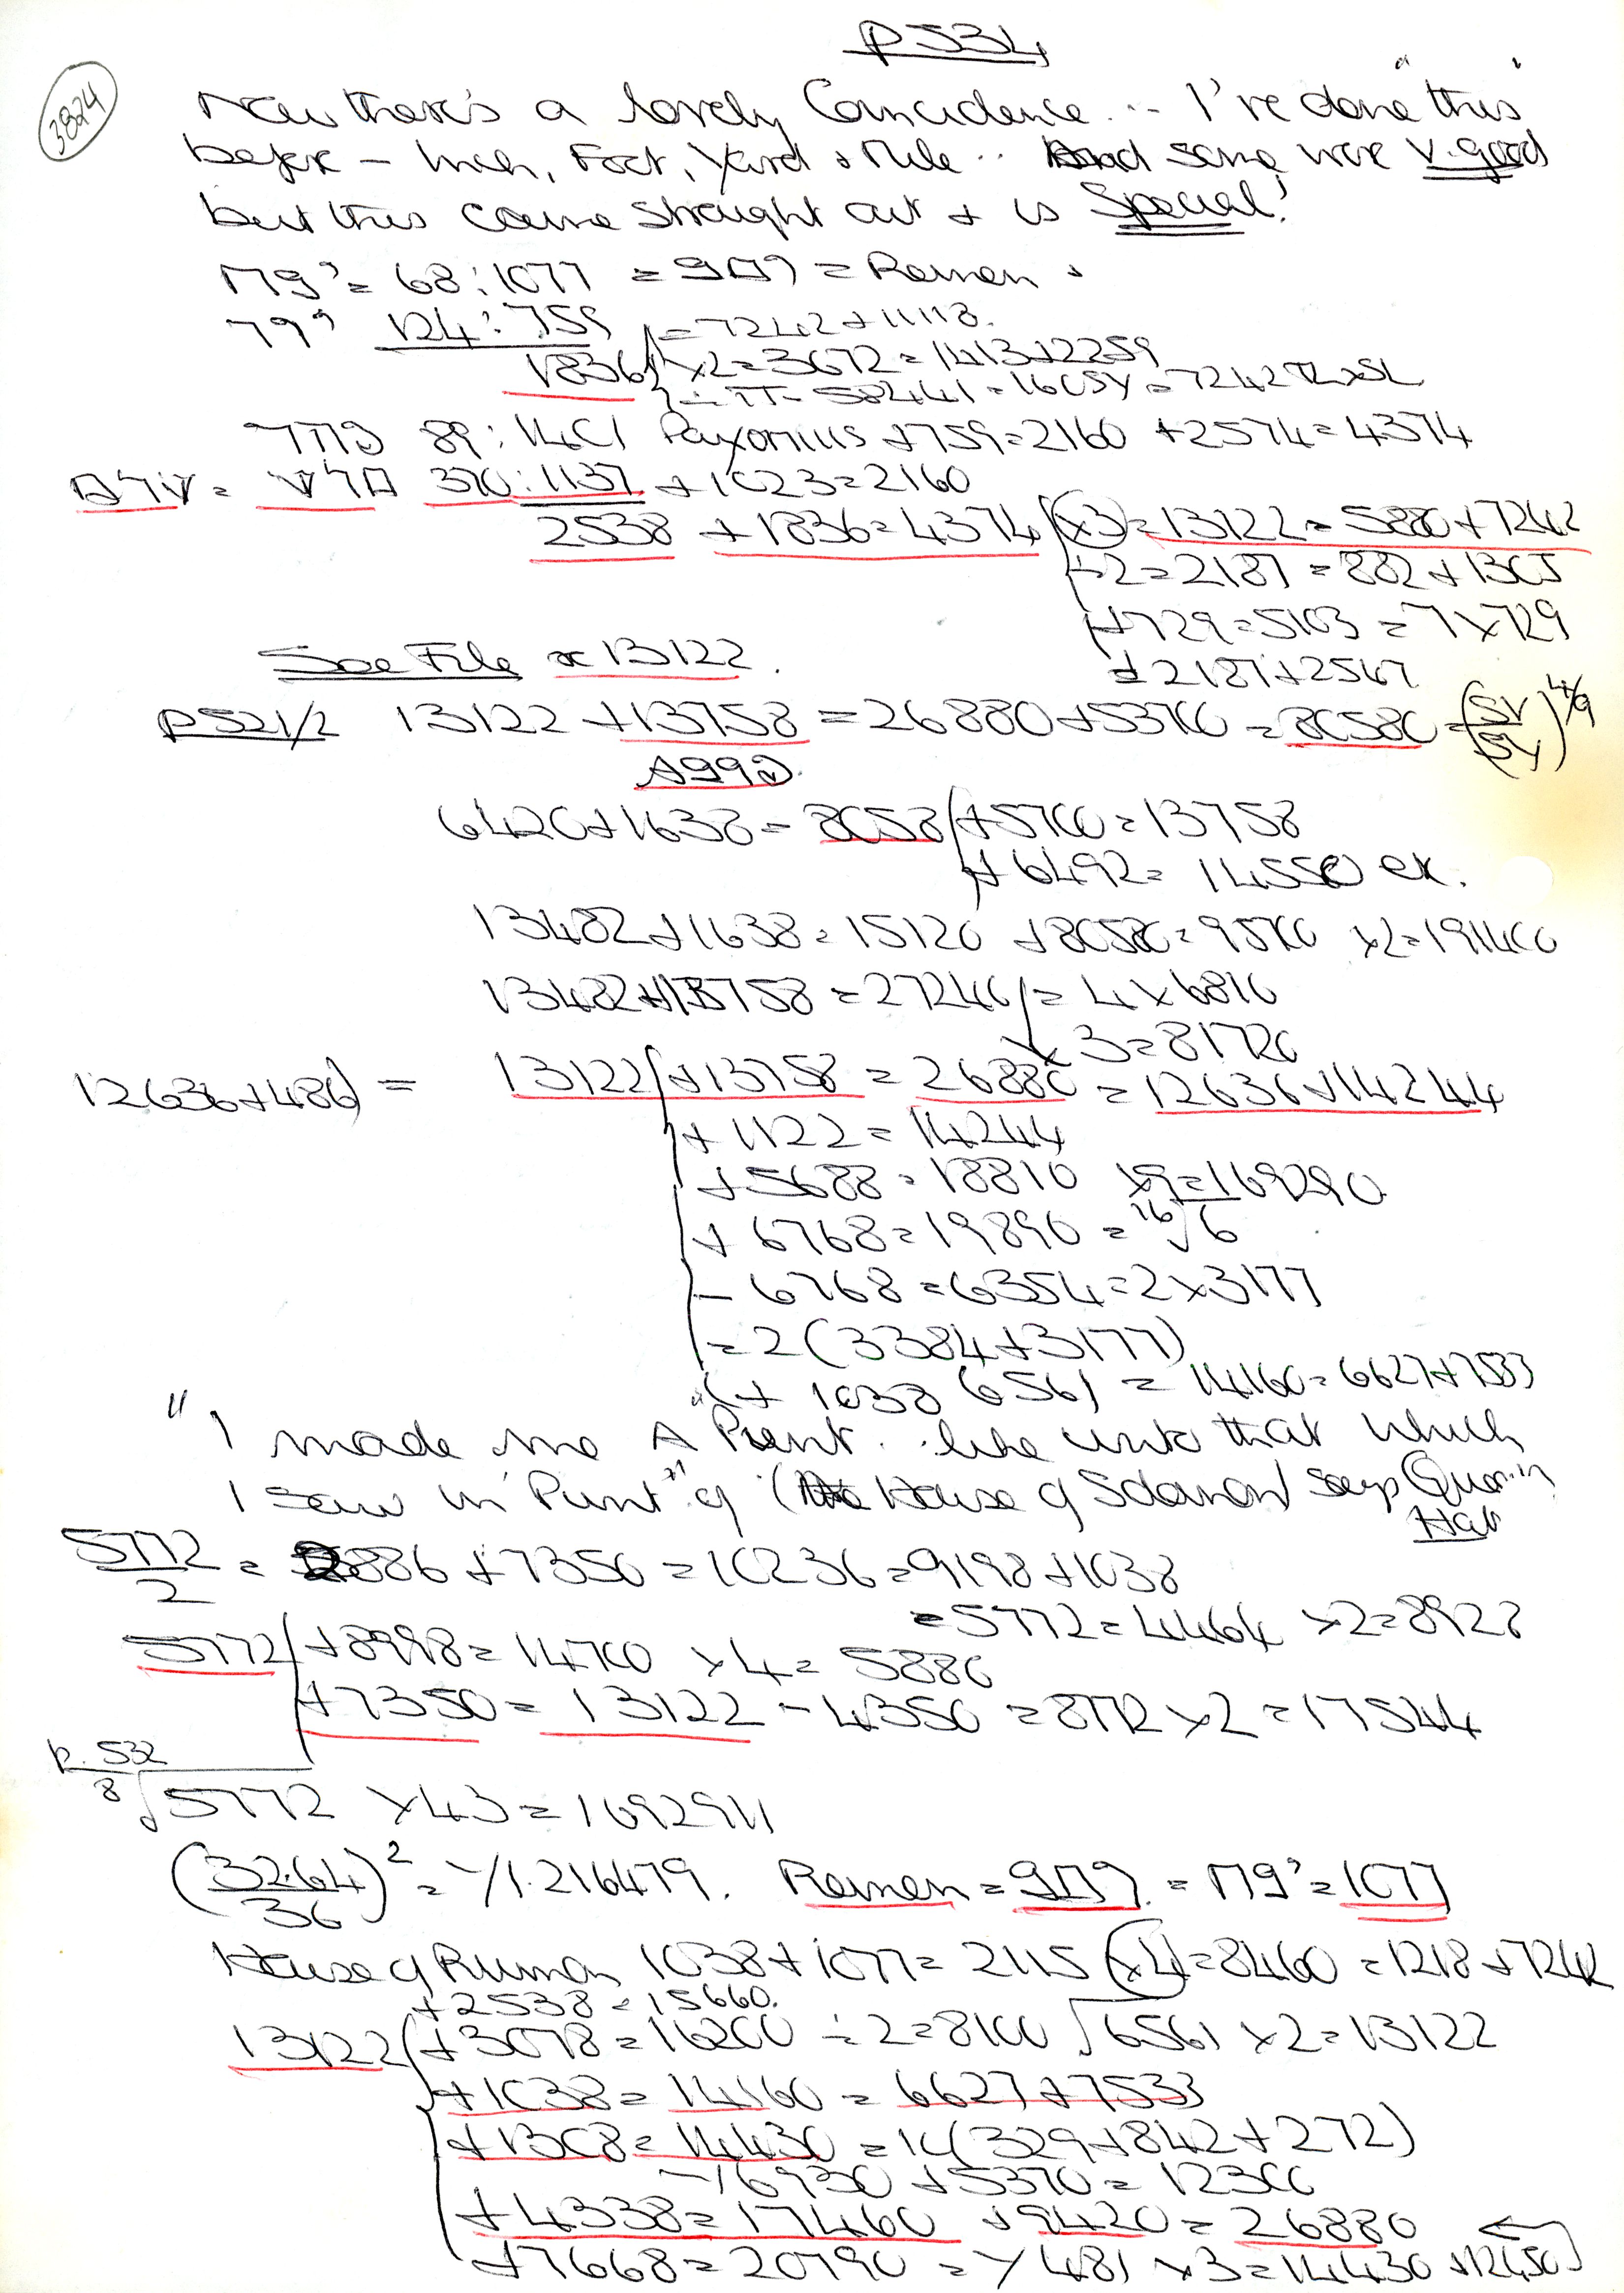 P534
3824
Now there's a lovely Coincidence ... I've done "this"
before - Inch, Foot, Yard & Mile .. And some were v. good
but this came straight out & is Special!
= 68:1077 = = Remen &
124:759 = 7242 + 11118.
1836 x2 = 3672 = 1413+2259
÷ π = 582441 =
89:1401 +759=2160 +2574=4374
370:1137 +1023=2160
2538 +1836=4374 (x3)=13122=5880+7242
÷2=2187=882+1305
+729=5103=7x729
+2187+2567
See File 13122.
P521/2 13122 +13758 =26880+53700 =80580 =
6420+1638=8058 +5700=13758
+6492=14550 ex.
13482+1638=15120 +80580=95700 x2=191400
13482+13758=27240 =4x6810
x3=81720
12636+486) = 13122 +13758 = 26880 =12636+14244
+1122=14244
+5688=18810 x9=169290
+6768=19890 = 16√6
-6768=6354=2x3177
=2(3384+3177)
+1038 6561 = 14160=6627+7533
"I made me A "Punt .. like unto that which
I saw in "Punt" of (House of Solomon) says Queen
Hat
5772/2 = 2886 +7350=10236=9198+1038
-5772=4464 x2=8928
5772 +8998=14700 x4= 5880
+7350=13122 -4350=8772 x2=17544
p. 532
8√5772 x43=1692911
(32.64/36)² = 1/1.216479. Remen = = =1077
House of Rimon 1038+1077=2115 (x4)=8460 =1218+7242
+2538=15660.
13122 +3078=16200 ÷2=8100 6561 x2=13122
+1038=14160=6627+7533
+1308=14430=10(329+842+272)
6930 +5370=12300
+4338=17460 +9420=26880
+7668=20790 = 1/481 x3=14430 +12450